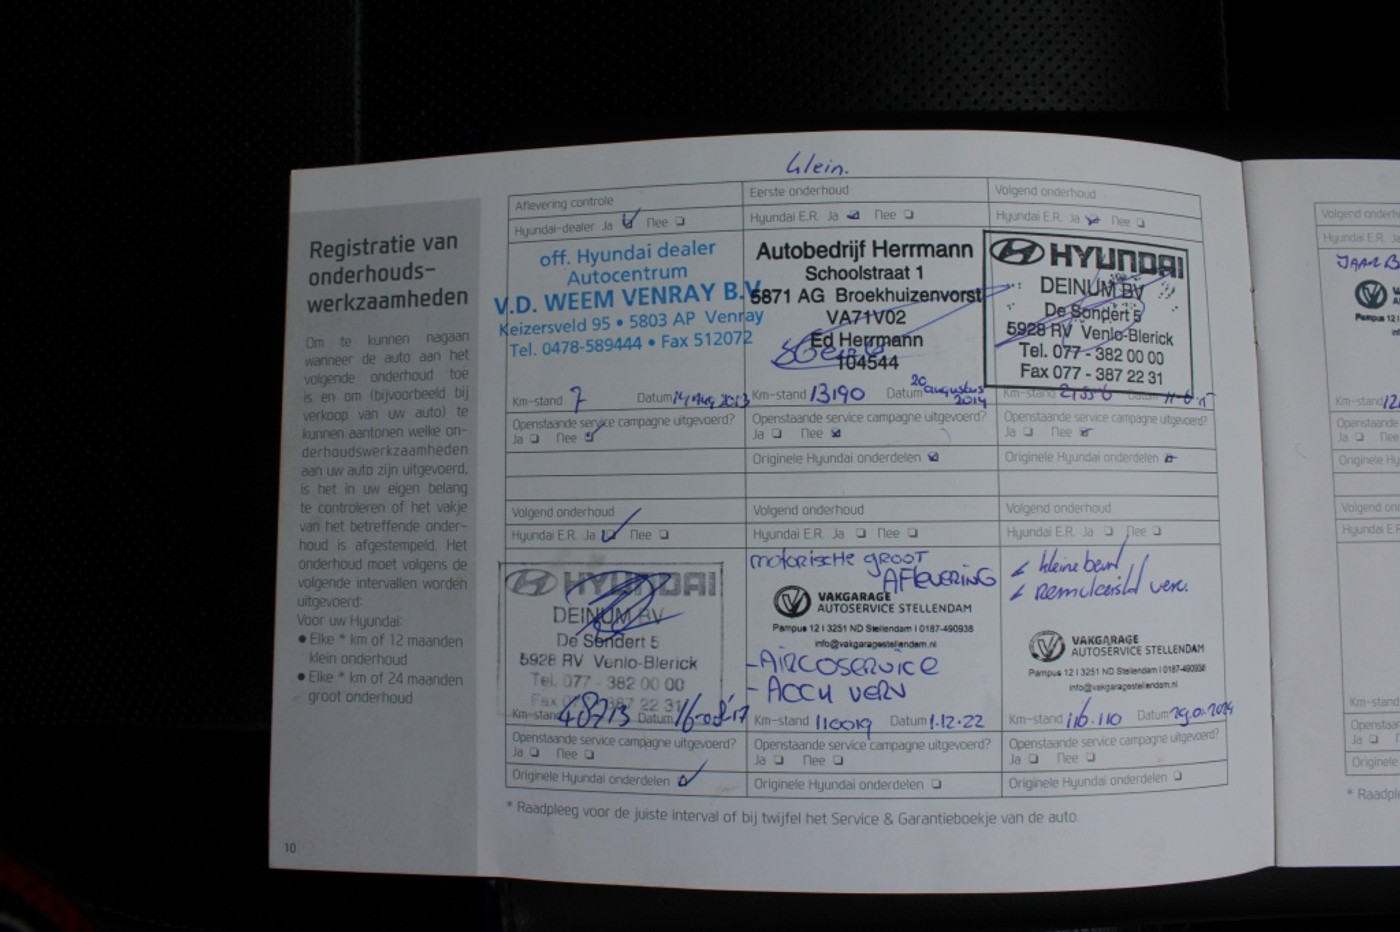 Klein.
Registratie van
onderhouds-
werkzaamheden
Om te kunnen nagaan
wanneer de auto aan het
volgende onderhoud toe
is en om (bijvoorbeeld bij
verkoop van uw auto) te
kunnen aantonen welke on-
derhoudswerkzaamheden
aan uw auto zijn uitgevoerd,
is het in uw eigen belang
te controleren of het vakje
van het betreffende onder-
houd is afgestempeld. Het
onderhoud moet volgens de
volgende intervallen worden
uitgevoerd:
Voor uw Hyundai:
● Elke * km of 12 maanden
klein onderhoud
● Elke * km of 24 maanden
groot onderhoud
10
Aflevering controle
Hyundai-dealer Ja Nee
off. Hyundai dealer
Autocentrum
V.D. WEEM VENRAY B.V.
Keizersveld 95 • 5803 AP Venray
Tel. 0478-589444 • Fax 512072
Km-stand 7 Datum 14 aug 2013
Openstaande service campagne uitgevoerd?
Ja Nee
Eerste onderhoud
Hyundai E.R. Ja Nee
Autobedrijf Herrmann
Schoolstraat 1
5871 AG Broekhuizenvorst
VA71V02
Ed Herrmann
104544
Km-stand 13190 Datum 20 augustus 2014
Openstaande service campagne uitgevoerd?
Ja Nee
Originele Hyundai onderdelen
Volgend onderhoud
Hyundai E.R. Ja Nee
HYUNDAI
DEINUM BV
De Sondert 5
5928 RV Venlo-Blerick
Tel. 077 - 382 00 00
Fax 077 - 387 22 31
Km-stand Datum
Openstaande service campagne uitgevoerd?
Ja Nee
Originele Hyundai onderdelen
Volgend onderhoud
Hyundai E.R. Ja Nee
HYUNDAI
DEINUM BV
De Sondert 5
5928 RV Venlo-Blerick
Tel. 077 - 382 00 00
Fax 077 - 387 22 31
Km-stand 48713 Datum
Openstaande service campagne uitgevoerd?
Ja Nee
Originele Hyundai onderdelen
Volgend onderhoud
Hyundai E.R. Ja Nee
motorische groot
AFLEVERING
VAKGARAGE
AUTOSERVICE STELLENDAM
Pampus 12 I 3251 ND Stellendam I 0187-490938
info@vakgaragestellendam.nl
-AIRCOSERVICE
-ACCU VERV
Km-stand 110019 Datum 1.12.22
Openstaande service campagne uitgevoerd?
Ja Nee
Originele Hyundai onderdelen
Volgend onderhoud
Hyundai E.R. Ja Nee
kleine beurt
remvloeistof verv.
VAKGARAGE
AUTOSERVICE STELLENDAM
Pampus 12 I 3251 ND Stellendam I 0187-490938
info@vakgaragestellendam.nl
Km-stand 116.110 Datum 29.01.2024
Openstaande service campagne uitgevoerd?
Ja Nee
Originele Hyundai onderdelen
* Raadpleeg voor de juiste interval of bij twijfel het Service & Garantieboekje van de auto.
Volgend onderhoud
Hyundai E.R. Ja
Pampus 12 I
Km-stand
Openstaande
Ja Nee
Originele Hy
Volgend on
Hyundai E.R
Km-stand
Openstaande
Ja
Originele
* Raadple